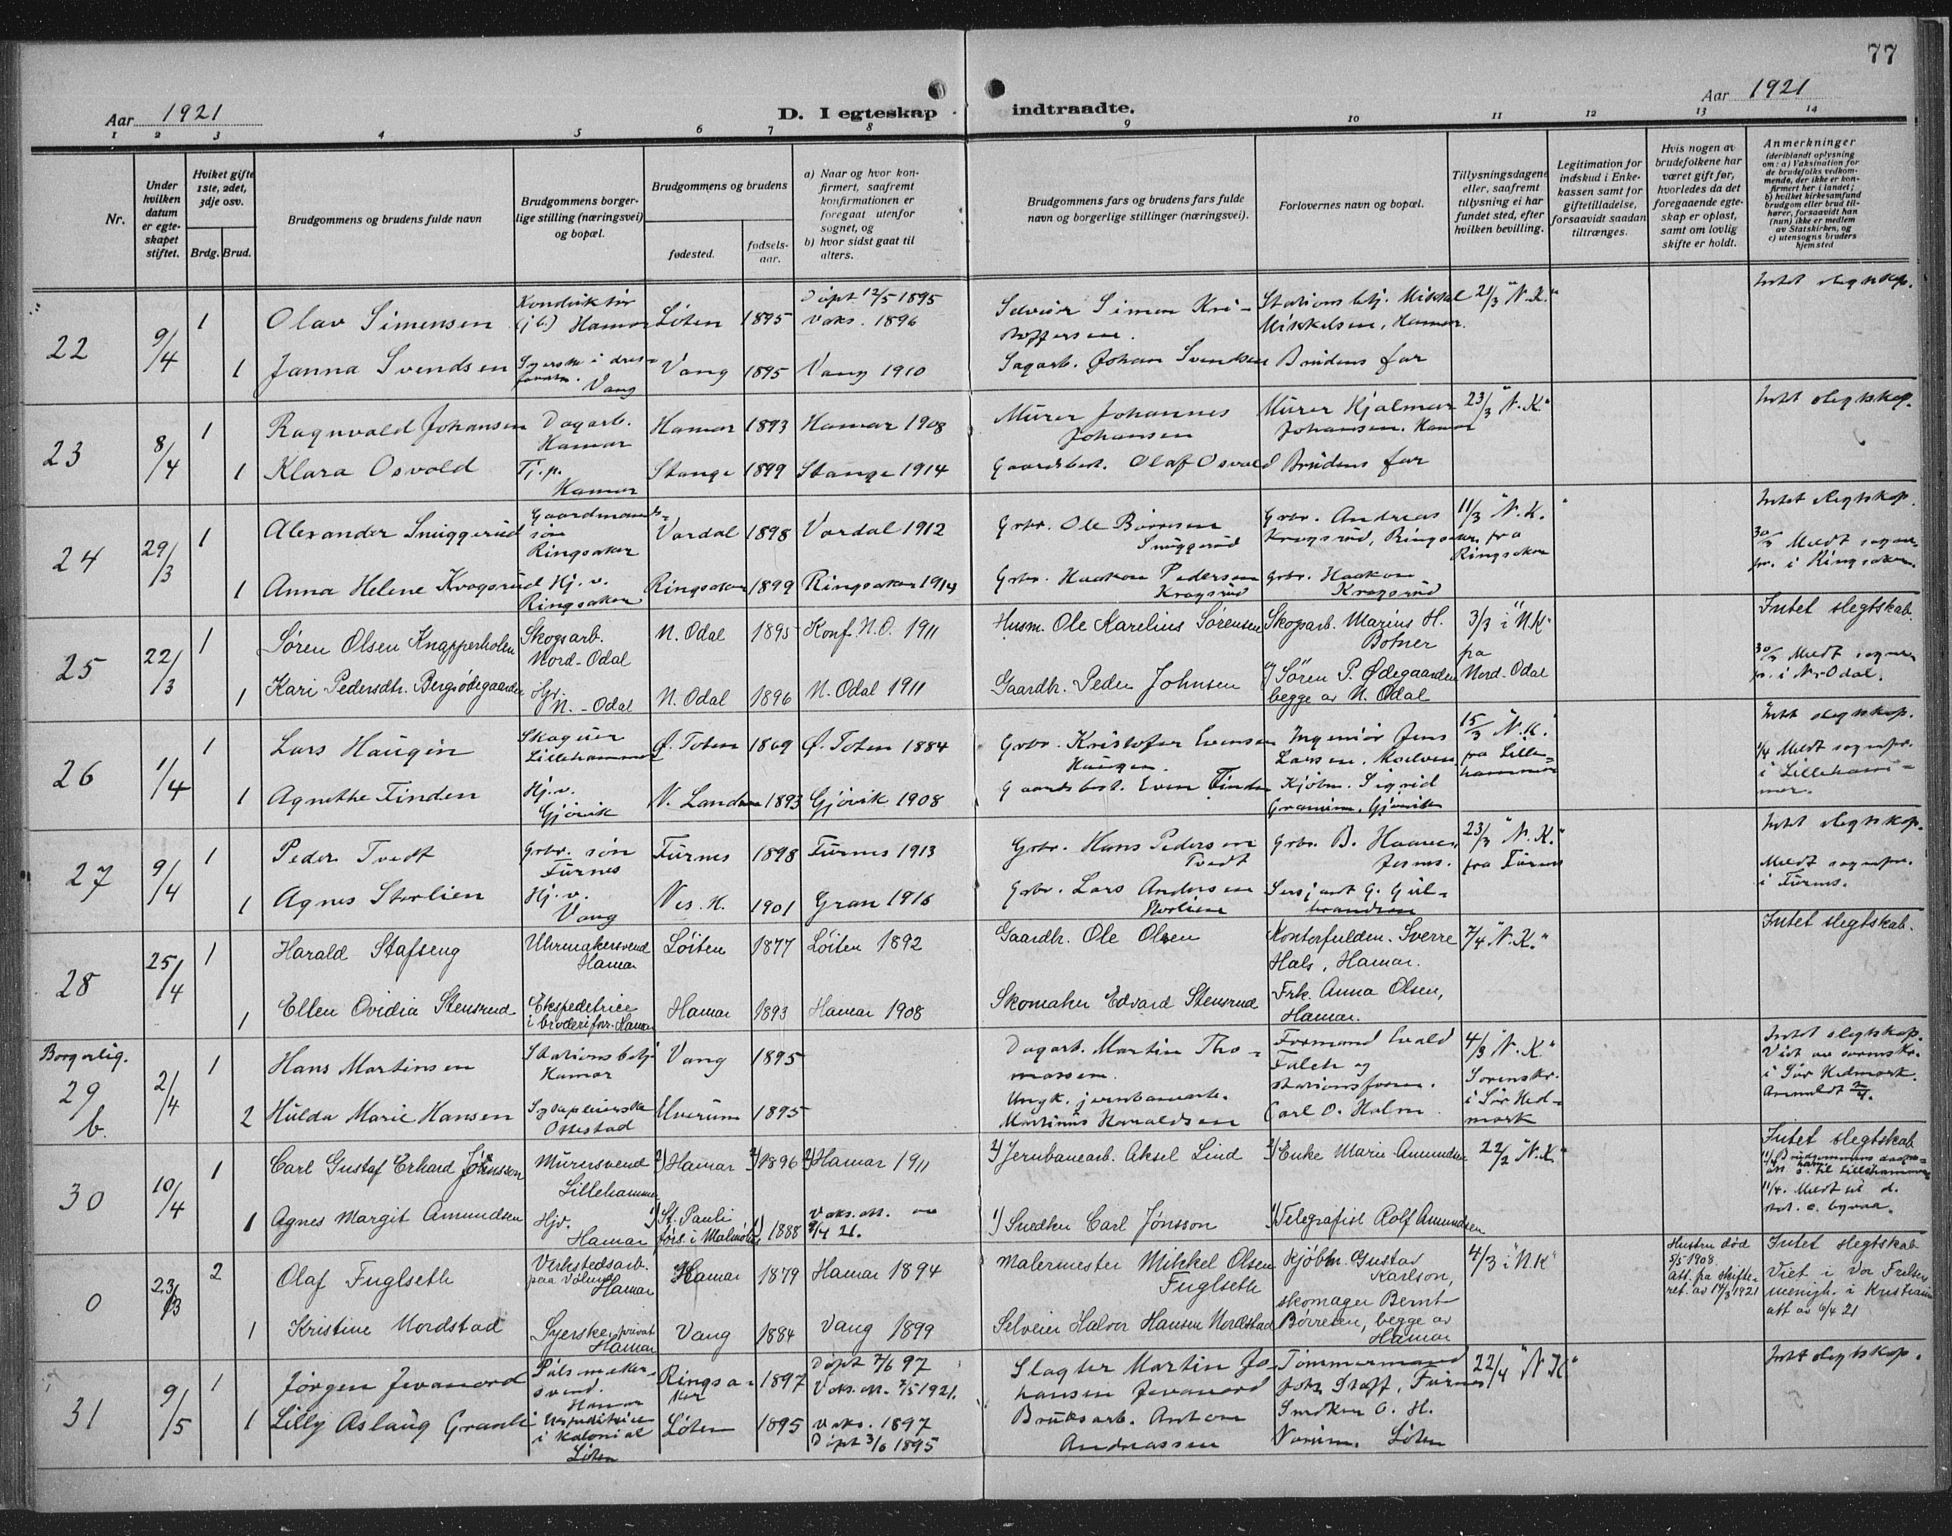 77
Aar 1921
D. I egteskap indtraadte.
Aar 1921
1 2 3 4 5 6 7 8 9 10 11 12 13 14
Nr.
Under hvilken datum er egteskapet stiftet.
Hviket gifte 1ste, 2det, 3dje osv.
Brdg. Brud.
Brudgommens og brudens fulde navn
Brudgommens borgerlige stilling (næringsvei) og bopæl.
Brudgommens og brudens
fødested.
fødselsaar.
a) Naar og hvor konfirmert, saafremt konfirmationen er foregaat utenfor sognet, og
b) hvor sidst gaat til alters.
Brudgommens fars og brudens fars fulde navn og borgerlige stillinger (næringsvei).
Forlovernes navn og bopæl.
Tillysningsdagene eller, saafremt tillysning ei har fundet sted, efter hvilken bevilling.
Legitimation for indskud i Enkekassen samt for giftetilladelse, forsaavidt saadan tiltrænges.
Hvis nogen av brudefolkene har været gift før, hvorledes da det foregaaende egteskap er opløst, samt om lovlig skifte er holdt.
Anmerkninger
(deriblandt oplysning om: a) Vaksination for de brudefolks vedkommende, der ikke er konfirmert her i landet; b) hvilket kirkesamfund brudgom eller brud tilhører, forsaavidt han (hun) ikke er medlem av Statskirken, og c) utensogns bruders hjemsted
22 9/4 1 Olav Simensen Konduktør (j.b.) Hamar Løten 1895 Døpt 12/5 1895 Vaks. 1896 Selveier Simen Kristoffersen. Stationsbetj. Mikkel Mikkelsen, Hamar. 21/3 "N.K." Intet slegtskap.
1 Janna Svendsen Vang Vang 1895 Vang 1910 Sagarb. Johan Svendsen Brudens far
23 8/4 1 Ragnvald Johansen Dagarb. Hamar Hamar 1893 Hamar 1908 Murer Johannes Johansen Murer Hjalmar Johansen, Hamar 23/3 "N.K." Intet slegtskap.
1 Klara Osvold Tj.p. Hamar Stange 1899 Stange 1914 Gaardsbest. Olaf Osvold Brudens far
24 29/3 1 Alexander Snuggerud Gaardmandssøn Ringsaker Vardal 1898 Vardal 1912 Grbr. Ole Børresen Snuggerud Grbr. Andreas Kragsrud, Ringsaker 11/3 "N.K." fra Ringsaker Intet slegtskap.
30/3 Meldt sognepr. i Ringsaker.
1 Anna Helene Kragsrud Hj.v. Ringsaker Ringsaker 1899 Ringsaker 1914 Grbr. Haakon Pedersen Kragsrud Grbr. Haakon Kragsrud
25 22/3 1 Søren Olsen Knapperholen Skogsarb. Nord-Odal N. Odal 1895 Konf. N.O. 1911 Husm. Ole Karelius Sørensen Skogsarb. Marius H. Botner 3/3 i "N.K" paa Nord-Odal Intet slegtskab.
30/3 Meldt sognepr. i N.-Odal.
1 Kari Pedersdtr. Bergsødegaarden Hjv. N.-Odal N. Odal 1896 N. Odal 1911 Gaardbr. Peder Johnsen og Søren P. Ødegaarden begge av N. Odal
26 1/4 1 Lars Haugen Lillehammer Ø. Toten 1869 Ø. Toten 1884 Grbr. Kristofer Evensen Haugen Ingeniør Jens Larsen, 15/3 "N.K." fra Lillehammer Intet slegtskap.
1/4 Meldt sognepr. i Lillehammer.
1 Agnethe Finden Hj.v. Gjøvik N. Land 1893 Gjøvik 1908 Gaardsbest. Even Finden Kjøbm. Sigvid Gjøvik
27 9/4 1 Peder Tvedt Grbr. søn Furnes Furnes 1898 Furnes 1913 Grbr. Hans Pedersen Tvedt Grbr. B. 23/3 "N.K." fra Furnes Intet slegtskap.
Meldt sognepr. i Furnes.
1 Agnes Storlien Hj.v. Vang 1901 Gran 1916 Grbr. Lars Andersen Storlien Sersjant G. Gulbrandsen
28 25/4 1 Harald Stafseng Uhrmakersvend Hamar Løiten 1877 Løiten 1892 Gaardbr. Ole Olsen Kontorfuldm. Sverre Hals, Hamar. 7/4 "N.K." Intet slegtskab.
1 Ellen Ovidia Stensrud Ekspeditrice i broderiforr. Hamar Hamar 1893 Hamar 1908 Skomaker Edvard Stensrud Frk. Anna Olsen, Hamar.
Borgerlig.
29 b. 2/4 1 Hans Martinsen Stationsbetj. Hamar Vang 1895 Dagarb. Martin Thomassen. Formand Evald Falch og stationsform. 4/3 "N.K." Sorenskr. i Sør Hedmark Intet slegtskap.
Viet av sorenskr. i Sør Hedmark.
2 Hulda Marie Hansen Ottestad Elverum 1895 Martinus Haraldsen Carl O. Holm.
30 10/4 1 Carl Gustaf Erhard Jönsson Murersvend Lillehammer 2) Hamar 2) 1896 2) Hamar 1911 2) Jernbanearb. Aksel Lind 2) Enke Marie Amundsen 22/2 "N.K" Intet slegtskab
1 Agnes Margit Amundsen Hjv. Hamar 1) St. Pauli förs. i Malmö 1) 1888 1) Snedker Carl Jönsson 1) Telegrafist Rolf Amundsen
0 23/3 2 Olaf Fuglseth Verkstedsarb. Hamar Hamar 1879 Hamar 1894 Malermester Mikkel Olsen Fuglseth Kjøbm. Gustav Karlson, 4/3 i "N.K" Hustru død 5/5 1908. Att. fra skifteret. av 17/3 1921 Intet slegtskab
Viet i Vor Frelsers menigh. i Kristiania att av 6/4 21
1 Kristine Nordstad Syerske, privat Hamar Vang 1884 Vang 1899 Selveier Halvor Hansen Nordstad skomager Bernt Børresen, begge av Hamar
31 9/5 1 Jørgen Jevanord Pølsmakersvend. Hamar Ringsaker 1897 Døpt 7/6 97 Slagter Martin Johansen Jevanord Tømmermand 22/4 "N.K" Intet slegtskap.
1 Lilly Aslaug Granli Løten Løten 1895 Vaks. 1897 Døpt 3/6 1895 Bruksarb. Anton Andreassen Løten